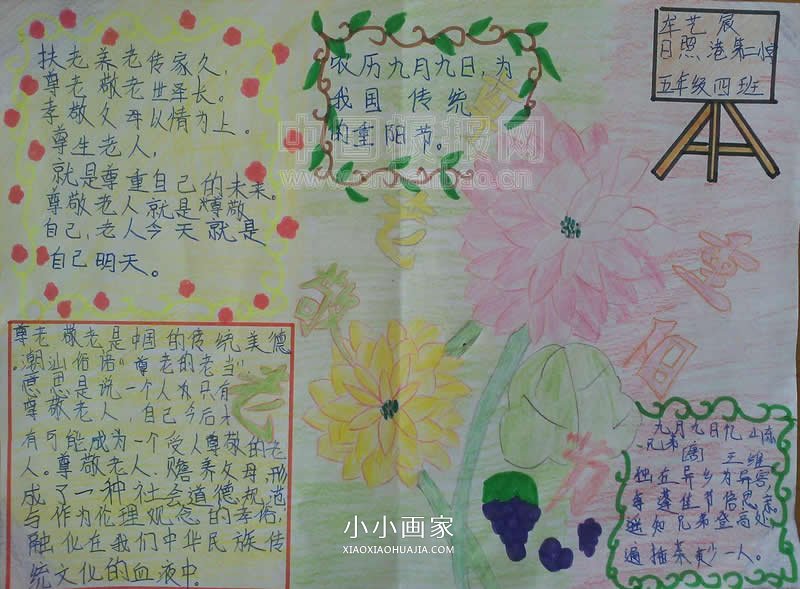 扶老养老传家久，
尊老敬老世泽长。
孝敬父母以情为上。
尊生老人，
就是尊重自己的未来。
尊敬老人就是尊敬
自己，老人今天就是
自己明天。
农历九月九日，为
我国传统
的重阳节。
中国板报网
艺宸
日照港第二小
五年级四班
尊老敬老是中国的传统美德
潮汕俗语“尊老的老当”
意思是说一个人为只有
尊敬老人，自己今后才
有可能成为一个受人尊敬的老
人。尊敬老人．赡养父母，形
成了一种社会道德规范
与作为伦理观念的孝俗，
融化在我们中华民族传
统文化的血液中．
九月九日忆山东
兄弟
[唐] 王维
独在异乡为异客
每逢佳节倍思亲
遥知兄弟登高处
遍插茱萸少一人。
小小画家
XIAOXIAOHUAJIA.COM